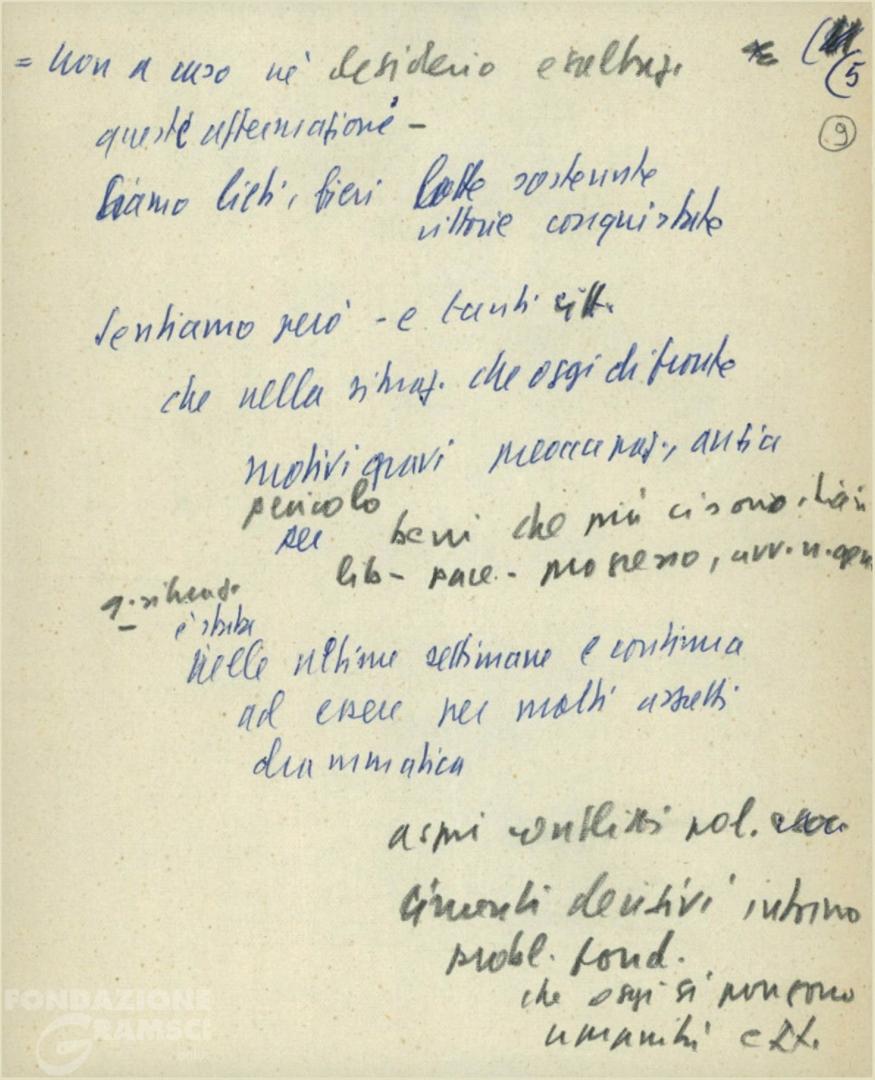 = non a caso né desiderio esaltaz.
(5
9
queste affermazioni -
Siamo lieti, fieri lotte sostenute
vittorie conquistate
Sentiamo però - e tanti citt.
che nella situaz. che oggi di fronte
motivi gravi preoccupaz., ansia
pericolo
per beni che più ci sono
lib - pace - progresso, avv. n. gen
q. situaz.
è stata
nelle ultime settimane e continua
ad essere per molti aspetti
drammatica
aspri conflitti pol.
cimenti decisivi intorno
probl. fond.
che oggi si pongono
umanità e It.
FONDAZIONE
GRAMSCI